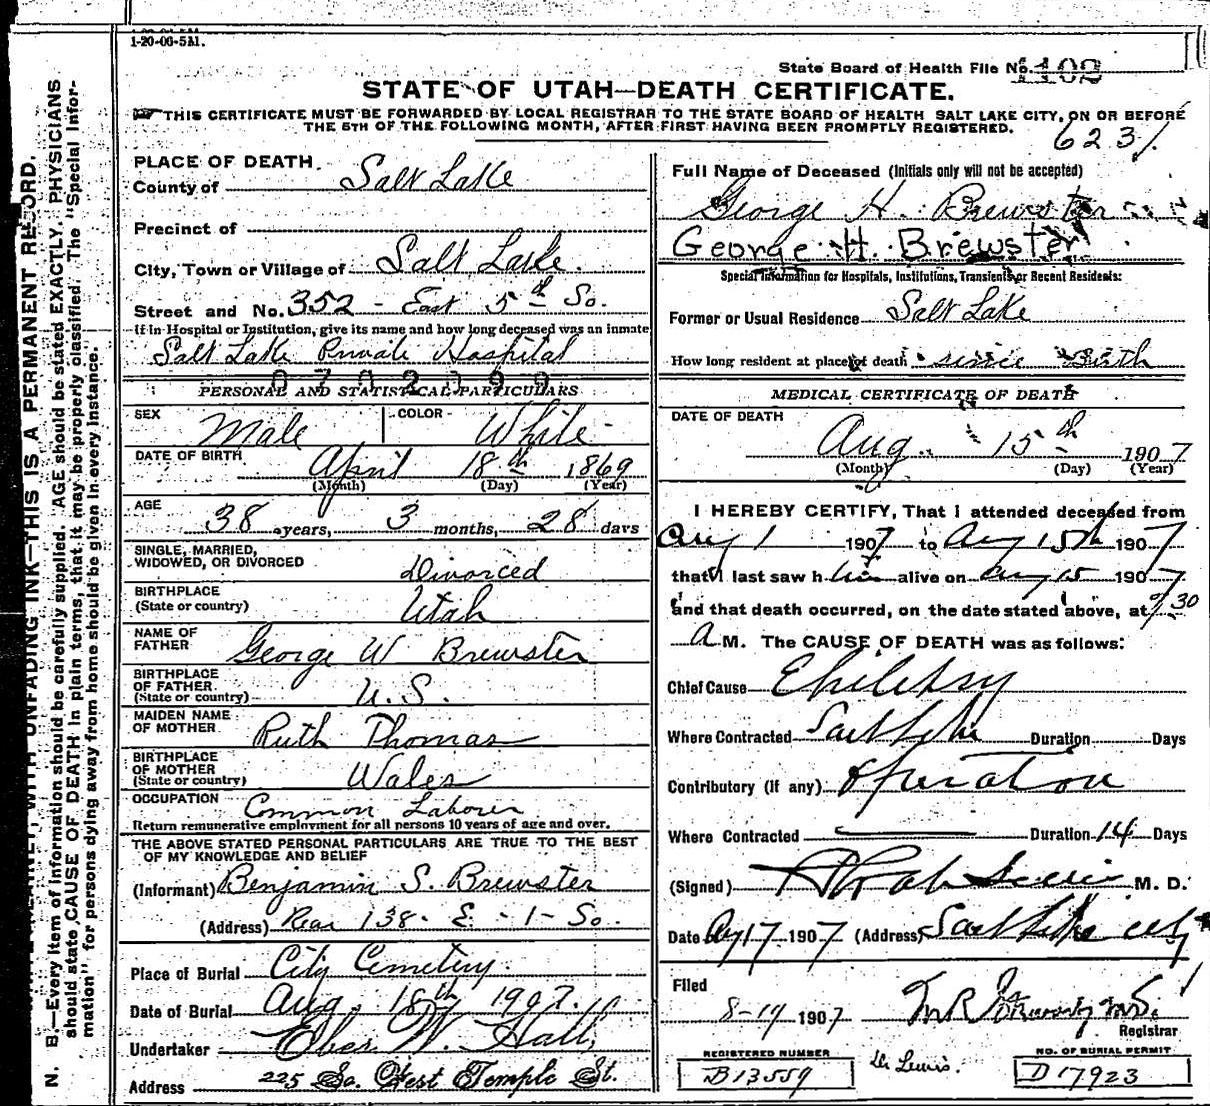 1-20-06-5M.
State Board of Health File No. 1102
STATE OF UTAH—DEATH CERTIFICATE.
THIS CERTIFICATE MUST BE FORWARDED BY LOCAL REGISTRAR TO THE STATE BOARD OF HEALTH SALT LAKE CITY, ON OR BEFORE
THE 5TH OF THE FOLLOWING MONTH, AFTER FIRST HAVING BEEN PROMPTLY REGISTERED.
623
PLACE OF DEATH.
County of Salt Lake
Precinct of
City, Town or Village of Salt Lake.
Street and No. 352 - East 5th So.
If in Hospital or Institution, give its name and how long deceased was an inmate
Salt Lake Private Hospital
0702199
PERSONAL AND STATISTICAL PARTICULARS
SEX Male COLOR - White
DATE OF BIRTH April 18th 1869
(Month) (Day) (Year)
AGE 38 years, 3 months, 28 days
SINGLE, MARRIED,
WIDOWED, OR DIVORCED Divorced
BIRTHPLACE
(State or country) Utah
NAME OF
FATHER George W Brewster
BIRTHPLACE
OF FATHER
(State or country) U.S.
MAIDEN NAME
OF MOTHER Ruth Thomas
BIRTHPLACE
OF MOTHER
(State or country) Wales
OCCUPATION Common Laborer
Return remunerative employment for all persons 10 years of age and over.
THE ABOVE STATED PERSONAL PARTICULARS ARE TRUE TO THE BEST
OF MY KNOWLEDGE AND BELIEF
(Informant) Benjamin S. Brewster
(Address) Rear 138 - E. - 1 - So.
Place of Burial City Cemetery.
Date of Burial Aug. 18th 1907.
Undertaker Eber W. Hall
Address 225 So. West Temple St.
Full Name of Deceased (Initials only will not be accepted)
George H. Brewster
George H. Brewster
Special Information for Hospitals, Institutions, Transients or Recent Residents:
Former or Usual Residence Salt Lake
How long resident at place of death since birth
MEDICAL CERTIFICATE OF DEATH
DATE OF DEATH
Aug. 15th 1907
(Month) (Day) (Year)
I HEREBY CERTIFY, That I attended deceased from
Aug 1 1907 to Aug 15th 1907
that I last saw him alive on Aug 15 1907
and that death occurred, on the date stated above, at 9.30
A M. The CAUSE OF DEATH was as follows:
Chief Cause Epilepsy
Where Contracted Salt Lake Duration Days
Contributory (If any) Operation
Where Contracted Duration 14 Days
(Signed) M. D.
Date Aug 17 1907 (Address) Salt Lake City
Filed
8-19 1907 M.D.
Registrar
REGISTERED NUMBER
B13559
Dr Lewis.
NO. OF BURIAL PERMIT
D17923
WITH UNFADING INK—THIS IS A PERMANENT RECORD.
N. B.—Every item of information should be carefully supplied. AGE should be stated EXACTLY. PHYSICIANS
should state CAUSE OF DEATH in plain terms, that it may be properly classified. The "Special Infor-
mation" for persons dying away from home should be given in every instance.